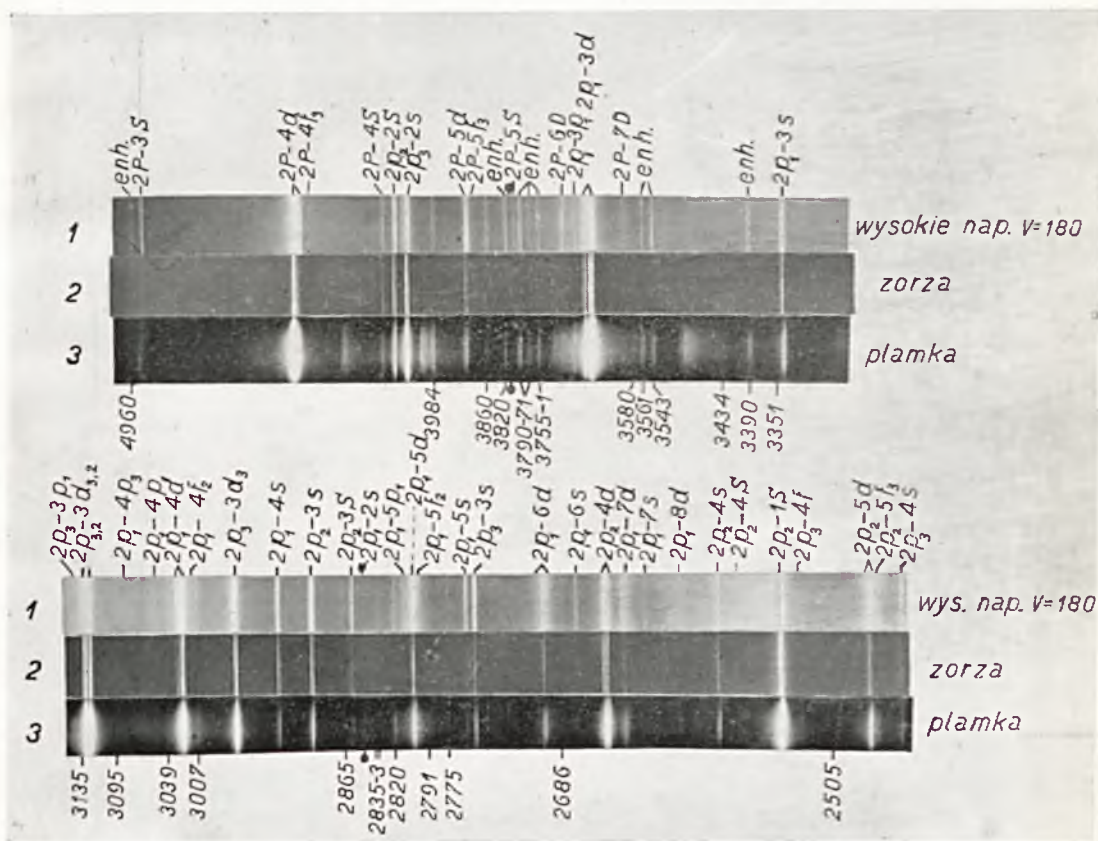 enh.
2P-3S
2P-4d
2P-4f₃
2P-4S
2p₂-2S
2p₃-2s
2P-5d
2P-5f₃
enh.
2P-5S
enh.
2P-6D
2p₁-3p₁
2p₁-3d
2P-7D
enh.
enh.
2p₁-3s
1 wysokie nap. V=180
2 zorza
3 plamka
4960
3984
3860
3820
3790-71
3755-1
3580
3561
3543
3434
3390
3351
2p₃-3p₁
2p₃,₂-3d₃,₂
2p₁-4p₃
2p₁-4p₁
2p₁-4d
2p₁-4f₂
2p₃-3d₃
2p₁-4s
2p₂-3s
2p₂-3S
2p₁-5p₁
2p₁-5d
2p₁-5f₂
2p₁-5s
2p₃-3s
2p₁-6d
2p₁-6s
2p₂-4d
2p₁-7d
2p₁-7s
2p₁-8d
2p₂-4s
2p₂-4S
2p₂-1S
2p₃-4f
2p₂-5d
2p₂-5f₃
2p₃-4s
1 wys. nap. V=180
2 zorza
3 plamka
3135
3095
3039
3007
2865
2835-3
2820
2791
2775
2686
2505